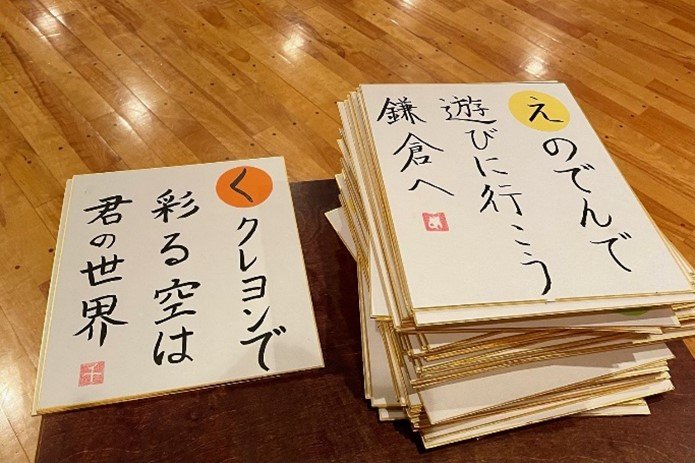 えのでんで
遊びに行こう
鎌倉へ
く
クレヨンで
彩る空は
君の世界